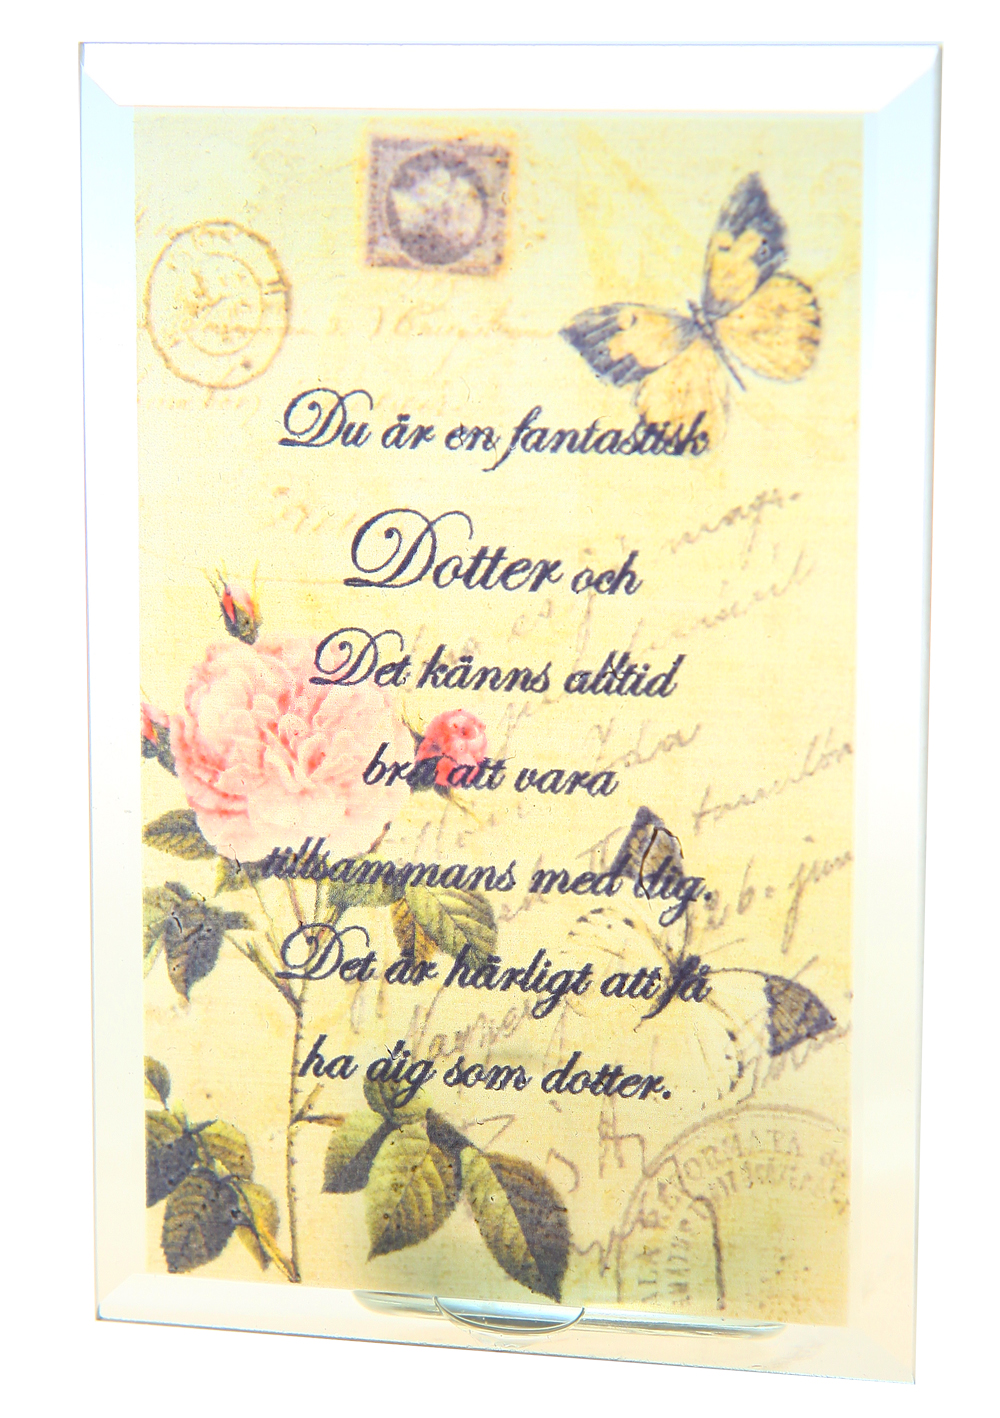 Du är en fantastisk
Dotter och
Det känns alltid
bra att vara
tillsammans med dig.
Det är härligt att få
ha dig som dotter.
26. jun